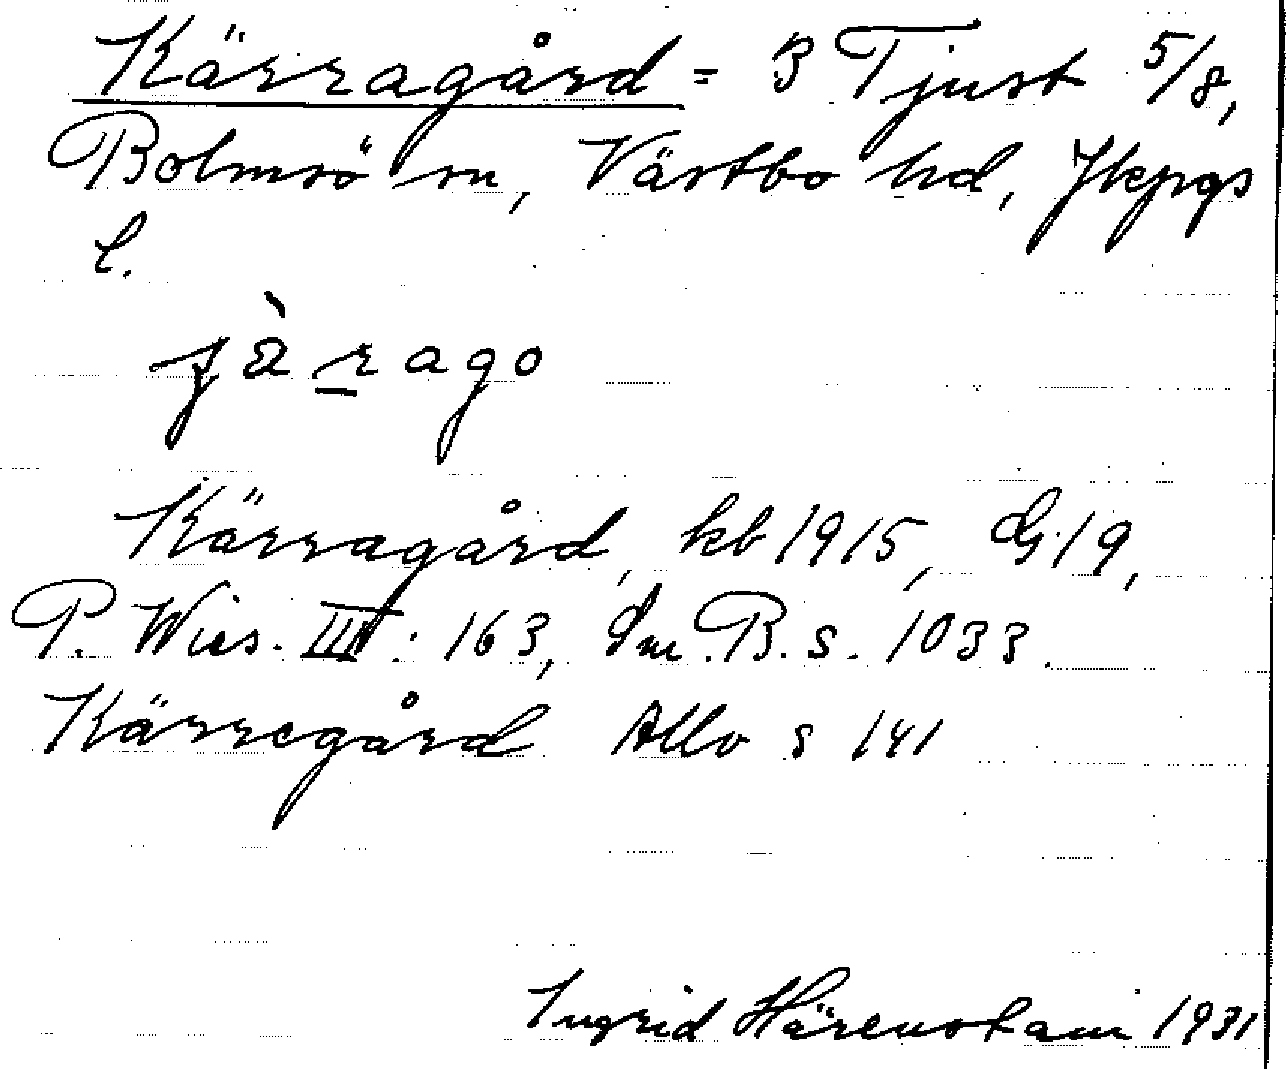 Kärragård = 3 Tjust 5/8,
Bolmsö sn, Västbo hd, Jkpgs
l.
Kärragård, kb 1915, G. 19,
P. Wies. III : 163, Sm. B. s. 1033.
Kärregård Allvo s 141
Ingrid Härenstam 1931